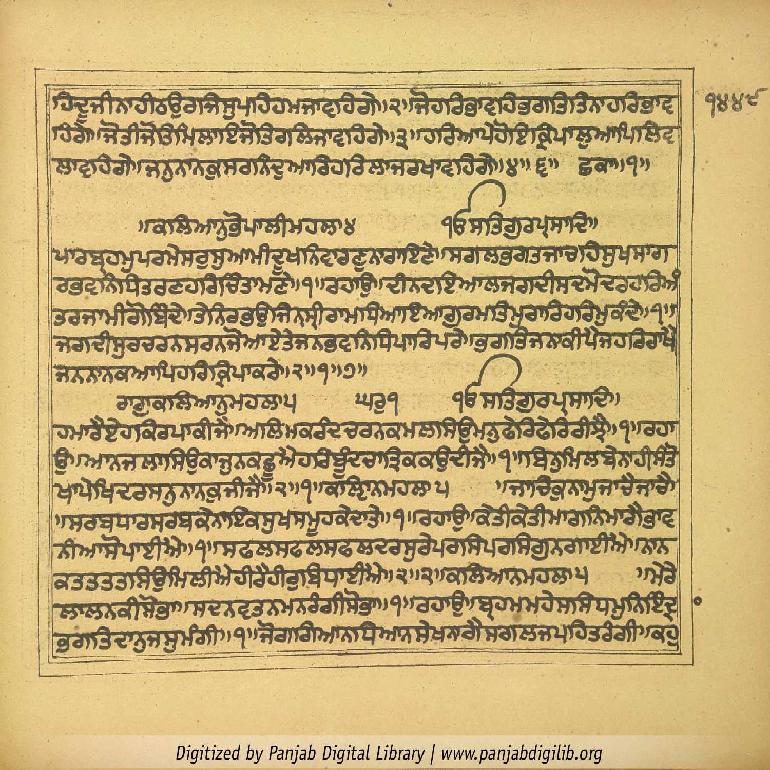 ਹਿਦੂਜੀਨਾਹੀਠਉਰਜਿਸੁਪਹਿਹਮਜਾਵਹਿਗੇ॥੨॥ਜੋਹਰਿਭਾਵਹਿਭਗਤਿਤਿਨਾਹਰਿਭਾਵ
੧੪੪੯
ਹਿਗੇ॥ਜੋਤੀਜੋਤਿਮਿਲਾਇਜੋਤਿਰਲਿਜਾਵਹਿਗੇ॥੩॥ਹਰਿਆਪੇਹੋਇਕ੍ਰਿਪਾਲੁਆਪਿਲਿਵ
ਲਾਵਹਿਗੇ॥ਜਨੁਨਾਨਕੁਸਰਨਿਦੁਆਰਿਹਰਿਲਾਜਰਖਾਵਹਿਗੇ॥੪॥੬॥ ਛਕਾ॥੧॥
॥ਕਲਿਆਨੁਭੋਪਾਲੀਮਹਲਾ੪ ੴਸਤਿਗੁਰਪ੍ਰਸਾਦਿ॥
ਪਾਰਬ੍ਰਹਮੁਪਰਮੇਸਰੁਸੁਆਮੀਦੂਖਨਿਵਾਰਣੁਨਰਾਇਣੇ॥ਸਗਲਭਗਤਜਾਚਹਿਸੁਖਸਾਗ
ਰਭਵਨਿਧਿਤਰਣਹਰਿਚਿੰਤਾਮਣੇ॥੧॥ਰਹਾਉ॥ਦੀਨਦਇਆਲਜਗਦੀਸਦਮੋਦਰਹਰਿਅੰ
ਤਰਜਾਮੀਗੋਬਿੰਦੇ॥ਤੇਨਿਰਭਉਜਿਨਸ੍ਰੀਰਾਮੁਧਿਆਇਆਗੁਰਮਤਿਮੁਰਾਰਿਹਰਿਮੁਕੰਦੇ॥੧॥
ਜਗਦੀਸੁਰਚਰਨਸਰਨਜੋਆਏਤੇਜਨਭਵਨਿਧਿਪਾਰਿਪਰੇ॥ਭਗਤਜਨਾਕੀਪੈਜਹਰਿਰਾਖੈ
ਜਨਨਾਨਕਆਪਿਹਰਿਕ੍ਰਿਪਾਕਰੇ॥੨॥੧॥੭॥
ਰਾਗੁਕਲਿਆਨੁਮਹਲਾ੫ ਘਰੁ੧ ੴਸਤਿਗੁਰਪ੍ਰਸਾਦਿ॥
ਹਮਾਰੈਏਹਕਿਰਪਾਕੀਜੈ॥ਅਲਿਮਕਰੰਦਚਰਨਕਮਲਸਿਉਮਨੁਫੇਰਿਫੇਰਿਰੀਝੈ॥੧॥ਰਹਾ
ਉ॥ਆਨਜਲਾਸਿਉਕਾਜੁਨਕਛੂਐਹਰਿਬੂੰਦਚਾਤ੍ਰਿਕਕਉਦੀਜੈ॥੧॥ਬਿਨੁਮਿਲਬੇਨਾਹੀਸੰਤੋ
ਖਾਪੇਖਿਦਰਸਨੁਨਾਨਕੁਜੀਜੈ॥੨॥੧॥ਕਲਿਆਨਮਹਲਾ੫ ॥ਜਾਚਿਕੁਨਾਮੁਜਾਚੈਜਾਚੈ
॥ਸਰਬਧਾਰਸਰਬਕੇਨਾਇਕਸੁਖਸਮੂਹਕੇਦਾਤੇ॥੧॥ਰਹਾਉ॥ਕੇਤੀਕੇਤੀਮਾਂਗਨਿਮਾਗੈਭਾਵ
ਨੀਆਸੋਪਾਈਐ॥੧॥ਸਫਲਸਫਲਸਫਲਦਰਸੁਰੇਪਰਸਿਪਰਸਿਗੁਨਗਾਈਐ॥ਨਾਨ
ਕਤਤਤਤਸਿਉਮਿਲੀਐਹੀਰੈਹੀਰੁਬਿਧਾਈਐ॥੨॥੨॥ਕਲਿਆਨਮਹਲਾ੫ ॥ਮੇਰੇ
ਲਾਲਨਕੀਸੋਭਾ॥ਸਦਨਵਤਨਮਨਰੰਗੀਸੋਭਾ॥੧॥ਰਹਾਉ॥ਬ੍ਰਹਮਮਹੇਸਸਿਧਮੁਨਿਇੰਦ੍ਰਾ
ਭਗਤਿਦਾਨੁਜਸੁਮੰਗੀ॥੧॥ਜੋਗਗਿਆਨਧਿਆਨਸੇਖਨਾਗੈਸਗਲਜਪਹਿਤਰੰਗੀ॥ਕਹੁ
Digitized by Panjab Digital Library | www.panjabdigilib.org